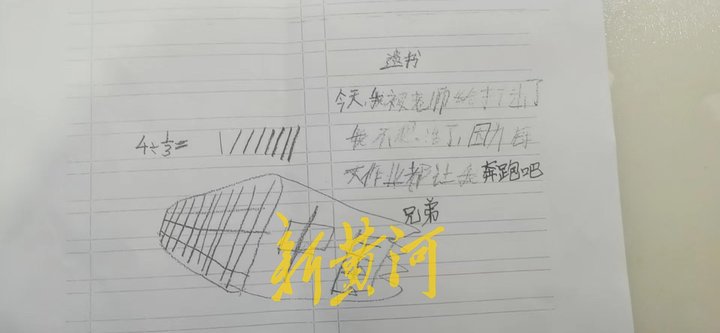 遗书
今天，我被老师给打了
我不想 了，因为每
4÷1/3=
次作业都让我奔跑吧
兄弟
新黄河